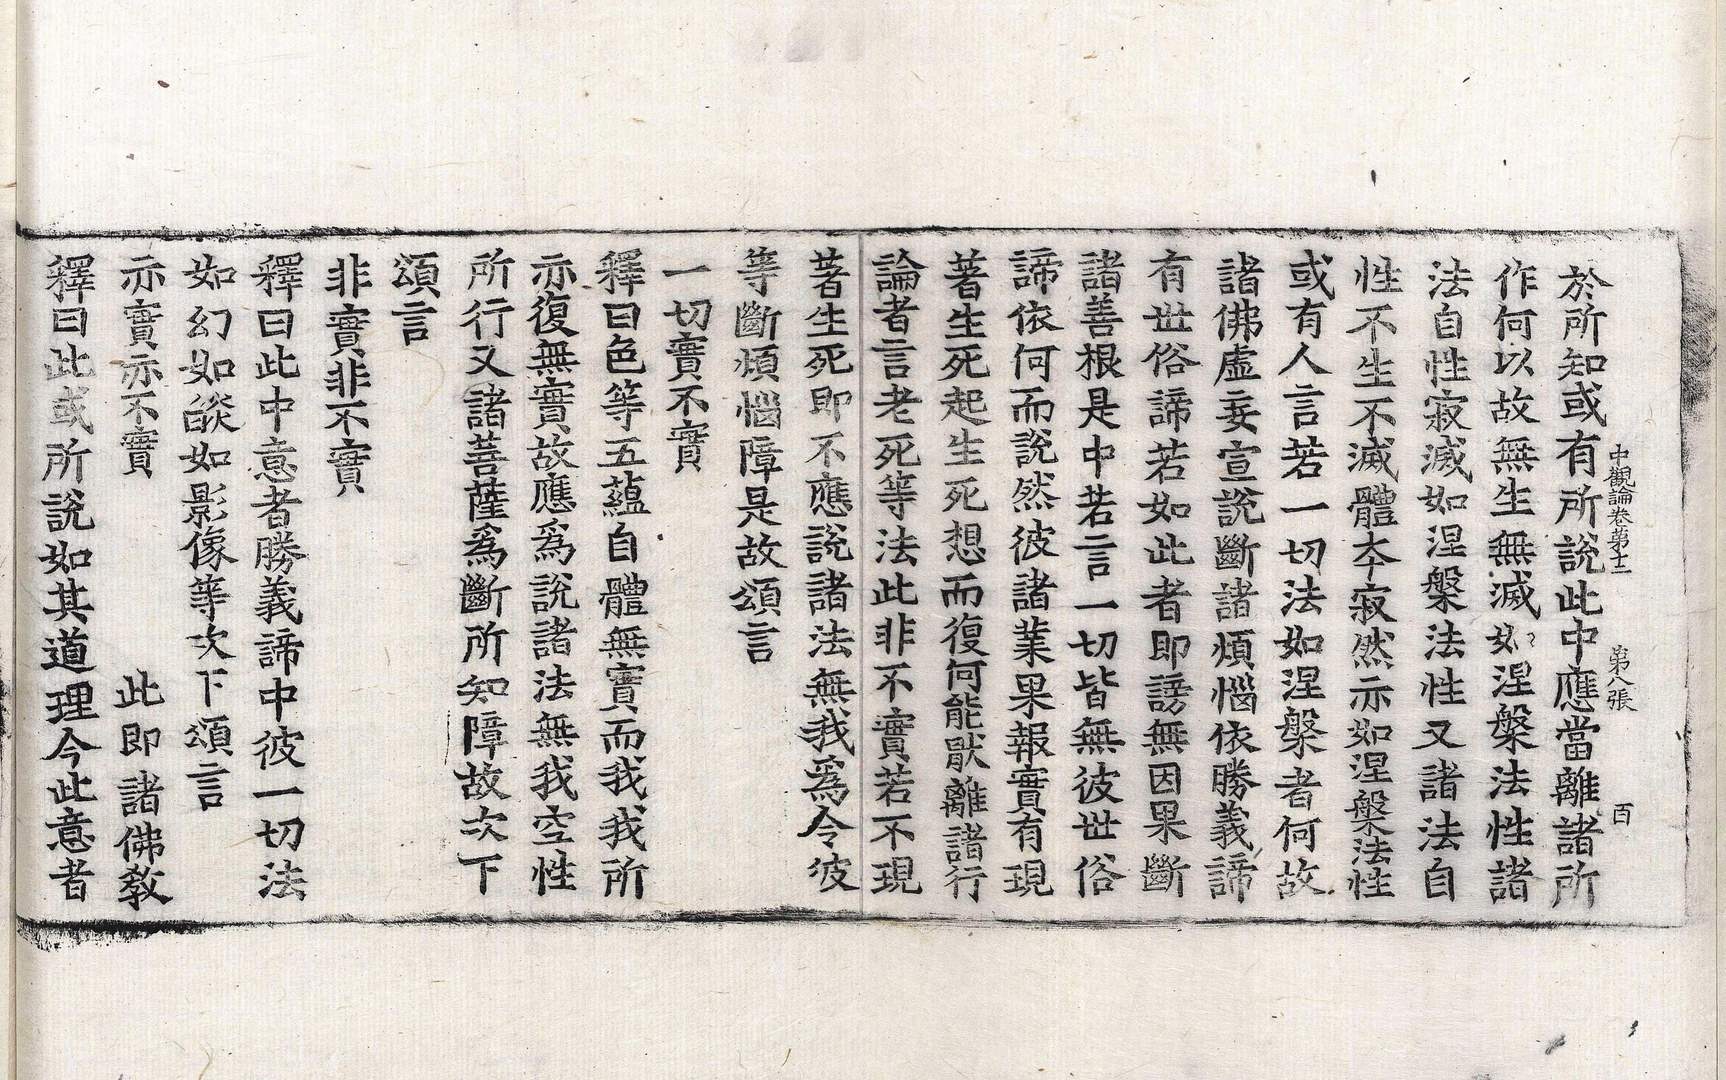 中觀論卷第十二　第八張　百
於所知或有所說此中應當離諸所
作何以故無生無滅如涅槃法性諸
法自性寂滅如涅槃法性又諸法自
性不生不滅體夲寂然亦如涅槃法性
或有人言若一切法如涅槃者何故
諸佛虛妄宣說斷諸煩惱依勝義諦
有世俗諦若如此者即謗無因果斷
諸善根是中若言一切皆無彼世俗
諦依何而說然彼諸業果報實有現
著生死起生死想而復何能猒離諸行
論者言老死等法此非不實若不現
著生死即不應說諸法無我爲令彼
等斷煩惱障是故頌言
一切實不實
釋曰色等五藴自體無實而我我所
亦復無實故應爲說諸法無我空性
所行又諸菩薩爲斷所知障故次下
頌言
非實非不實
釋曰此中意者勝義諦中彼一切法
如幻如燄如影像等次下頌言
亦實亦不實　此即諸佛敎
釋曰此或所說如其道理今此意者